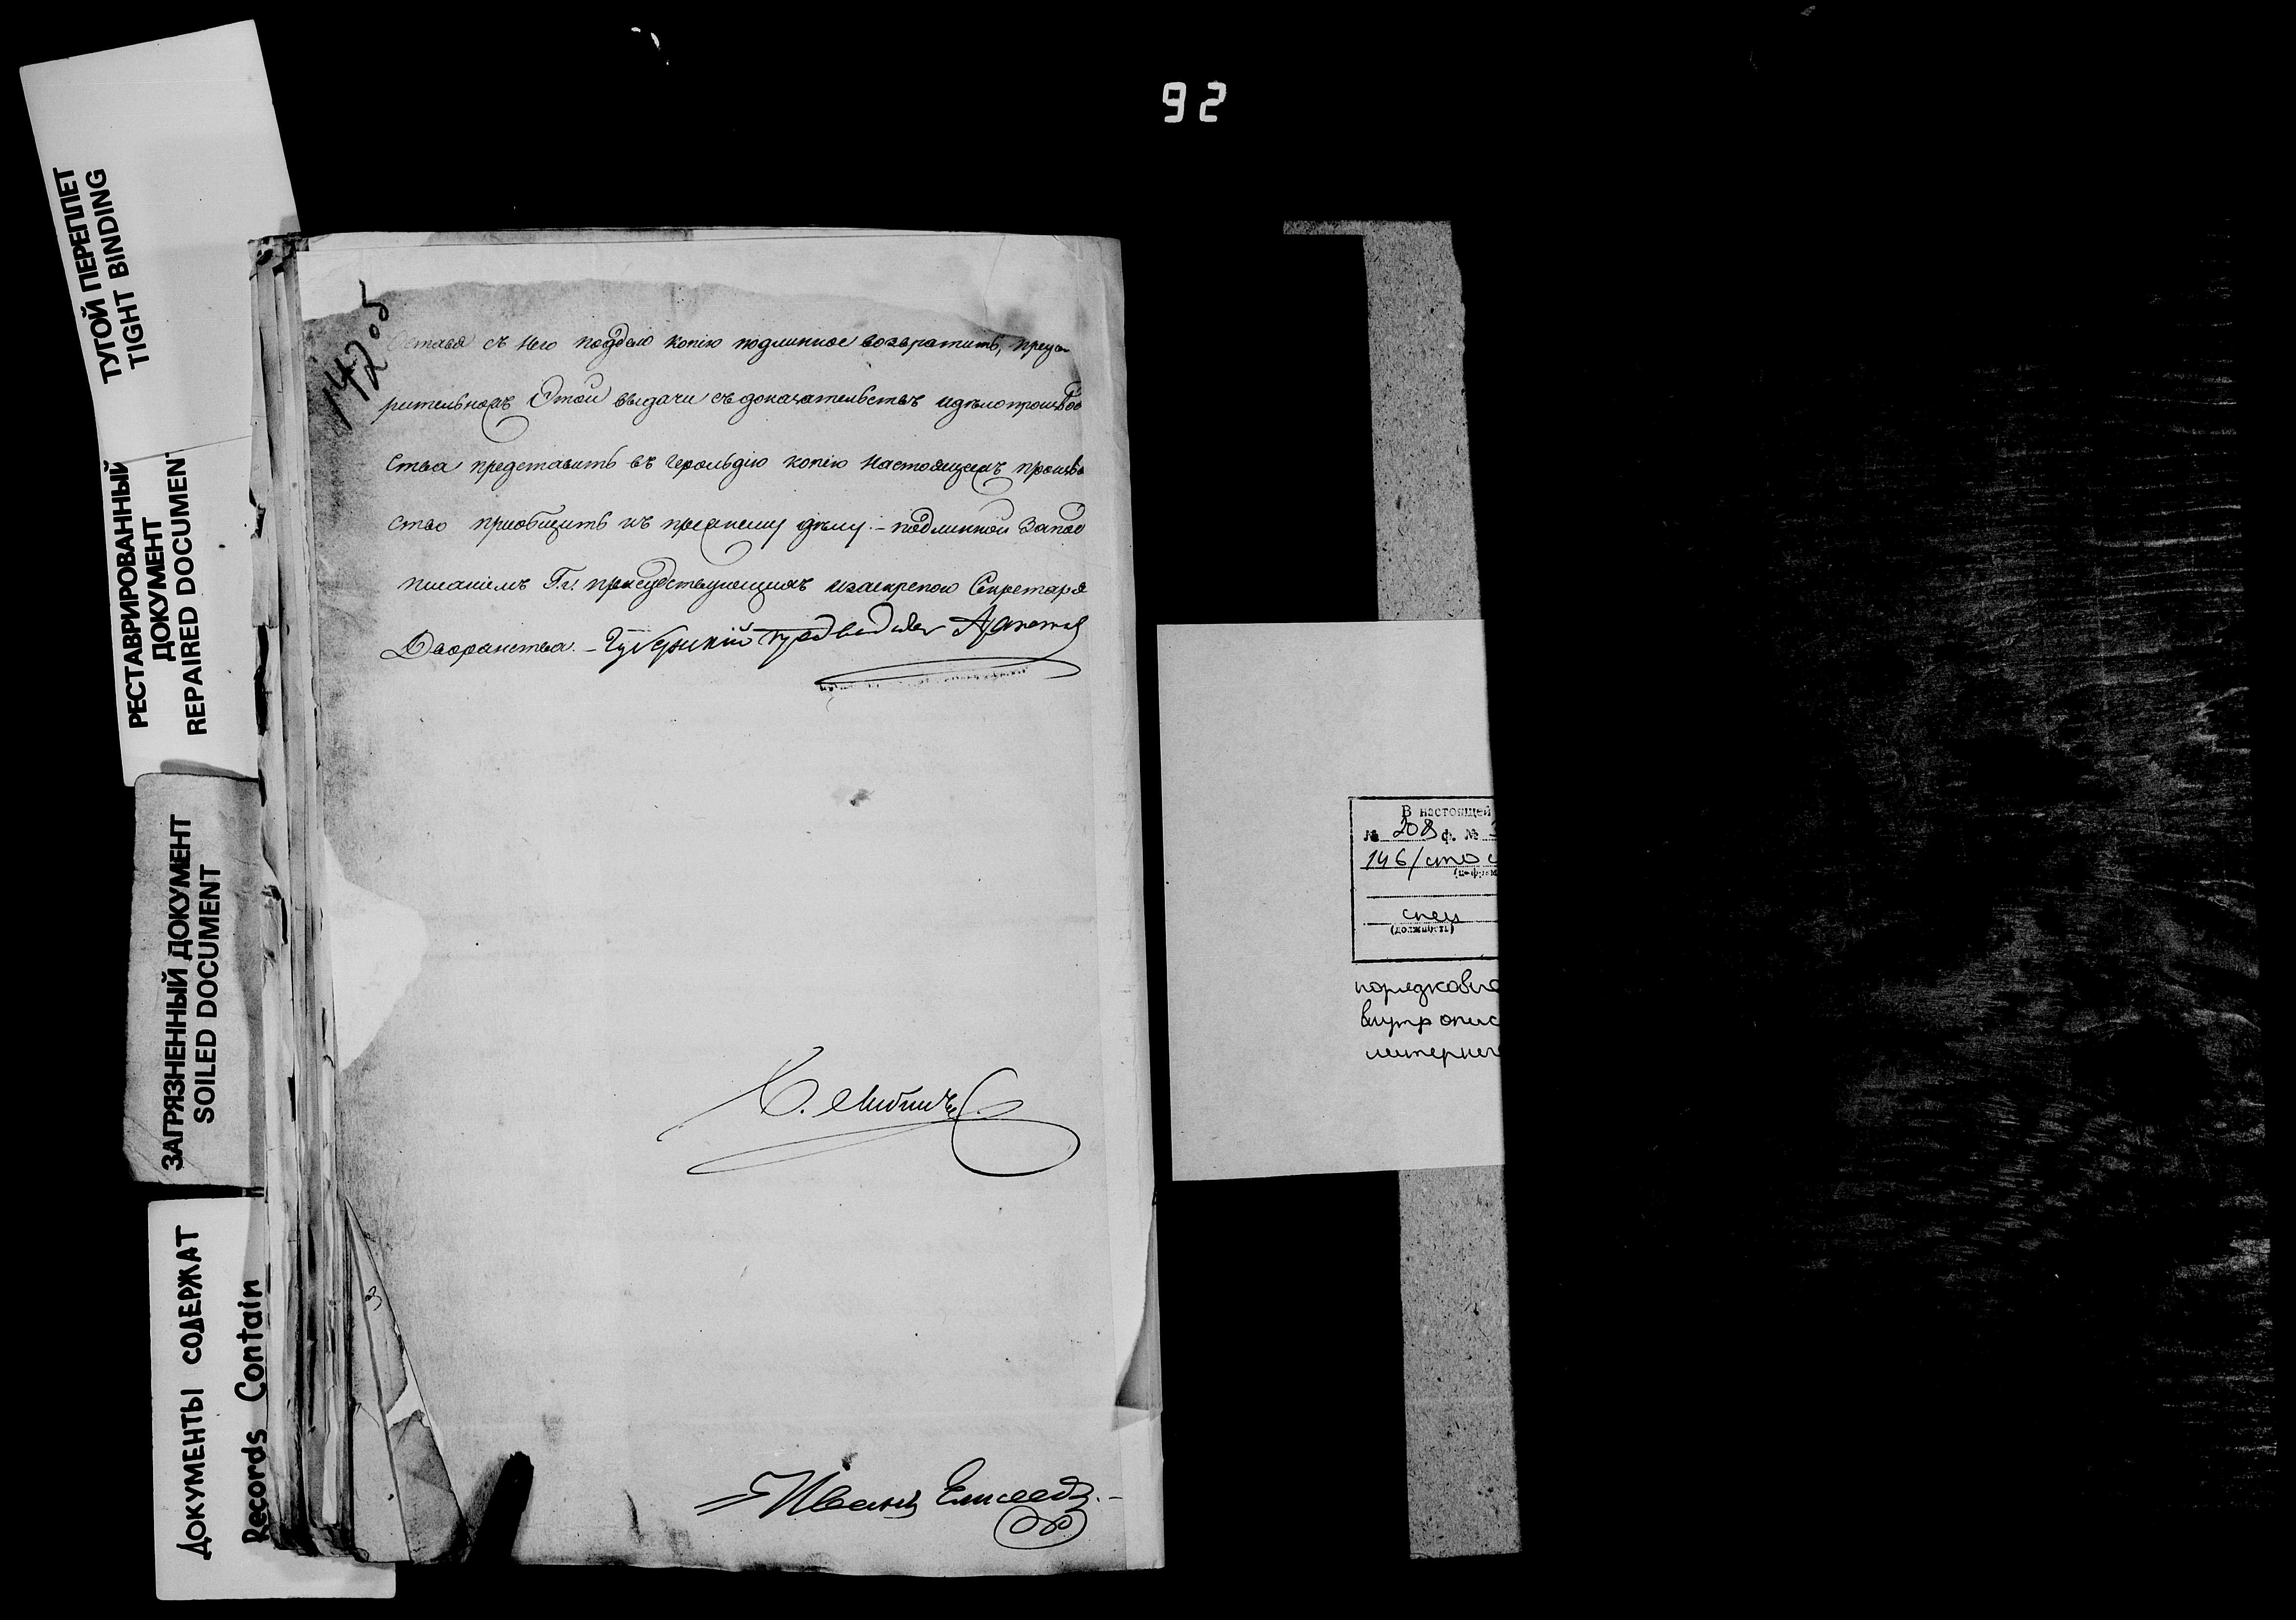 92
ТУГОЙ ПЕРЕПЛЕТ
TIGHT BINDING
РЕСТАВРИРОВАННЫЙ
ДОКУМЕНТ
REPAIRED DOCUMENT
ЗАГРЯЗНЕННЫЙ ДОКУМЕНТ
SOILED DOCUMENT
ДОКУМЕНТЫ СОДЕРЖАТ
Records Contain
142
205
съ него кодѣлю копію подлинное возвратить,
рительномъ Этой выдачи съ доказательствъ идѣлопроизвод
ства представить въ герольдію копію настоящимъ произво
ство приобщить къ прежнему дѣлу. – подлинной За под
писаніемъ Г.г. присудствующихъ изаскрепою Секретаря
Дворянства. – Губернскій предводитель
Иванъ Елисеевъ. –
В настоящей
№ 208 ф. №
146/сто
спец
(должность)
порядкового
внутр опис
литерных